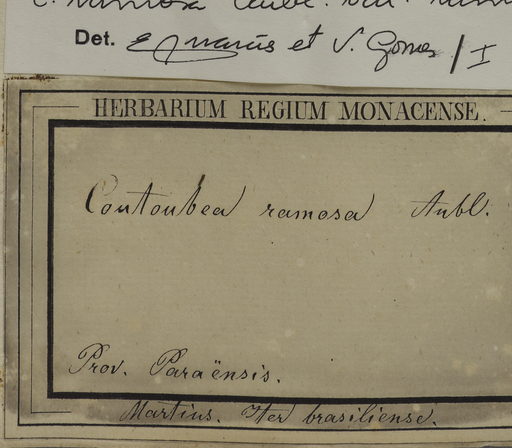 C. ramosa Aubl. var.
Det. et V. Gomes / I
HERBARIUM REGIUM MONACENSE.
Coutoubea ramosa Aubl.
Prov. Paraënsis.
Martius. Iter brasiliense.